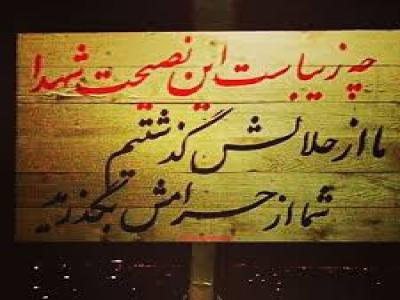 چه زیباست این نصیحت شهدا
ما از حلالش گذشتیم
شما از حرامش بگذرید